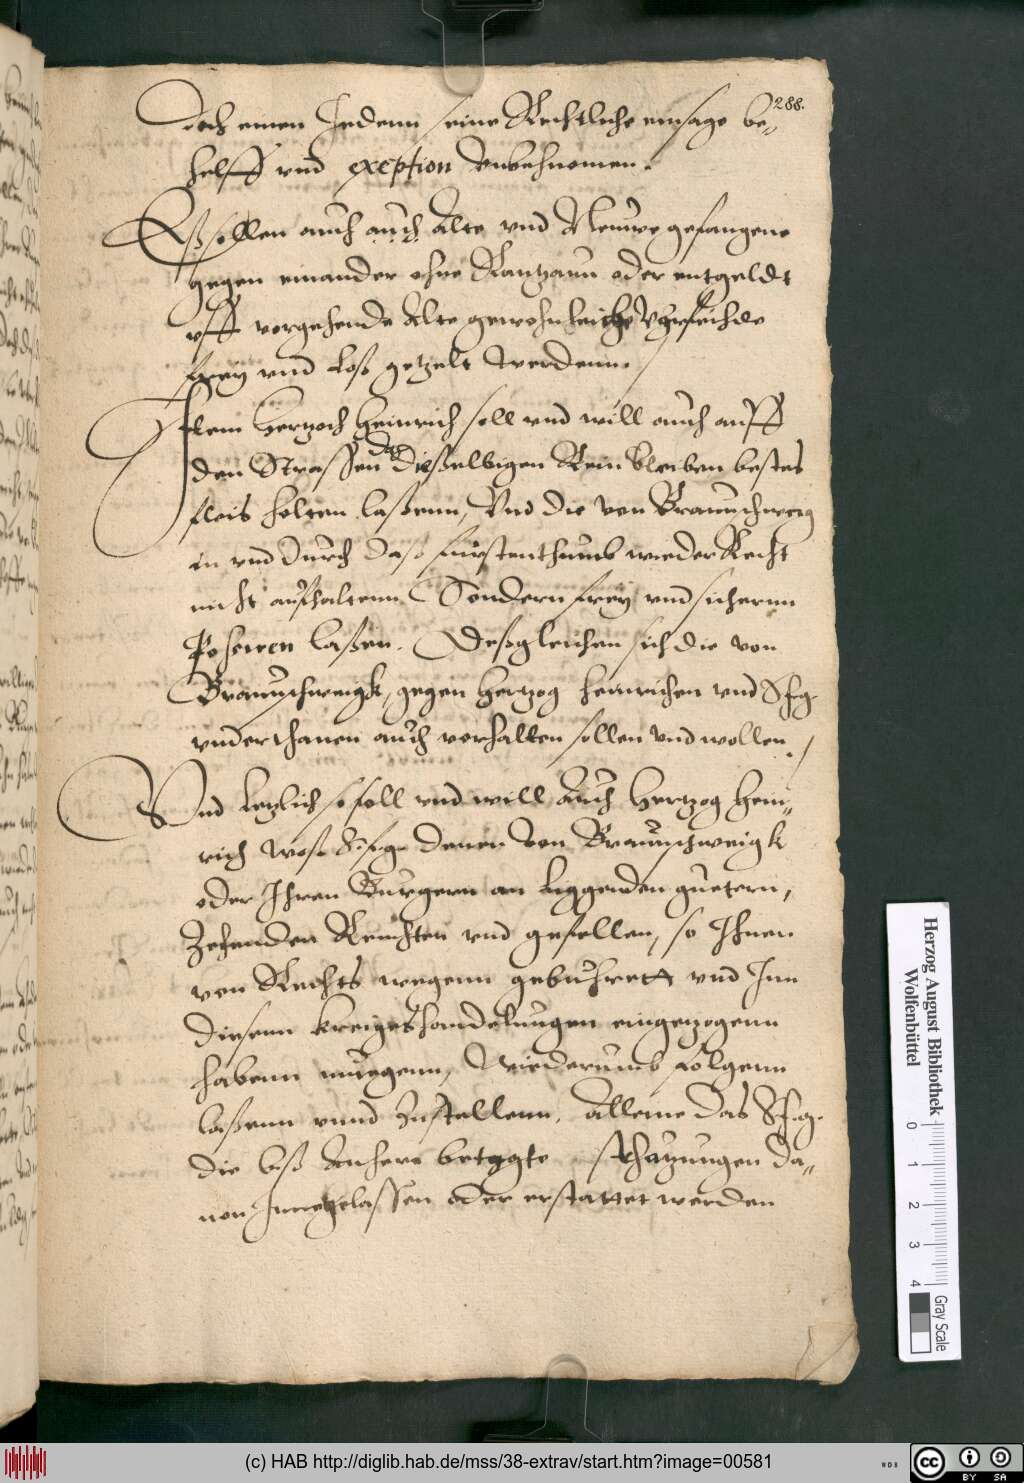 288.
doch einen Jedenn seine Rechtliche einsage be-
helff vnd exception Vnbenhomen.
Eß sollen auch auch Alte vnd Neuwe gefangene
gegen einander ohne Rantzaun oder entgeldt
vff vorgehende Alte gewohnliche Vhrfeihde
frey vnd loß getzelt werdenn.
Item Hertzoch Heinrich soll vnd will auch auff
den Strassen das dießelbigen Rein bleiben bestes
fleis halten laßenn, Vnd die von Braunschweig
in vnd durch daß furstenthumb wieder Recht
nicht auffhaltenn Sondern frey vnd sichernn
Passiren laßen. Deßgleichen sich die von
Braunschweigk, gegen Hertzog Heinrichen vnd S.f.g.
vnderthanen auch verhalten sollen vnd wollen.
Vnd letzlich so soll vnd will Auch Hertzog Hein-
rich waß S.f.g. denen von Braunschweigk
oder Ihren Burgern an liggenden guetern,
Zehenden Renthen vnd gefellen, so Ihnen
von Rechts wegenn gebuhrett vnd Inn
diesenn kreigeshandelungen eingezogenn
habenn muegenn, Wiederumb folgenn
laßenn vnnd Zustellenn. Alleine das S.f.g.
die biß Anhero betagte schatzungen da-
von Innegelassen oder erstattet werden
Herzog August Bibliothek
Wolfenbüttel
0
1
2
3
4
Gray Scale
(c) HAB http://diglib.hab.de/mss/38-extrav/start.htm?image=00581
WDB
cc BY SA